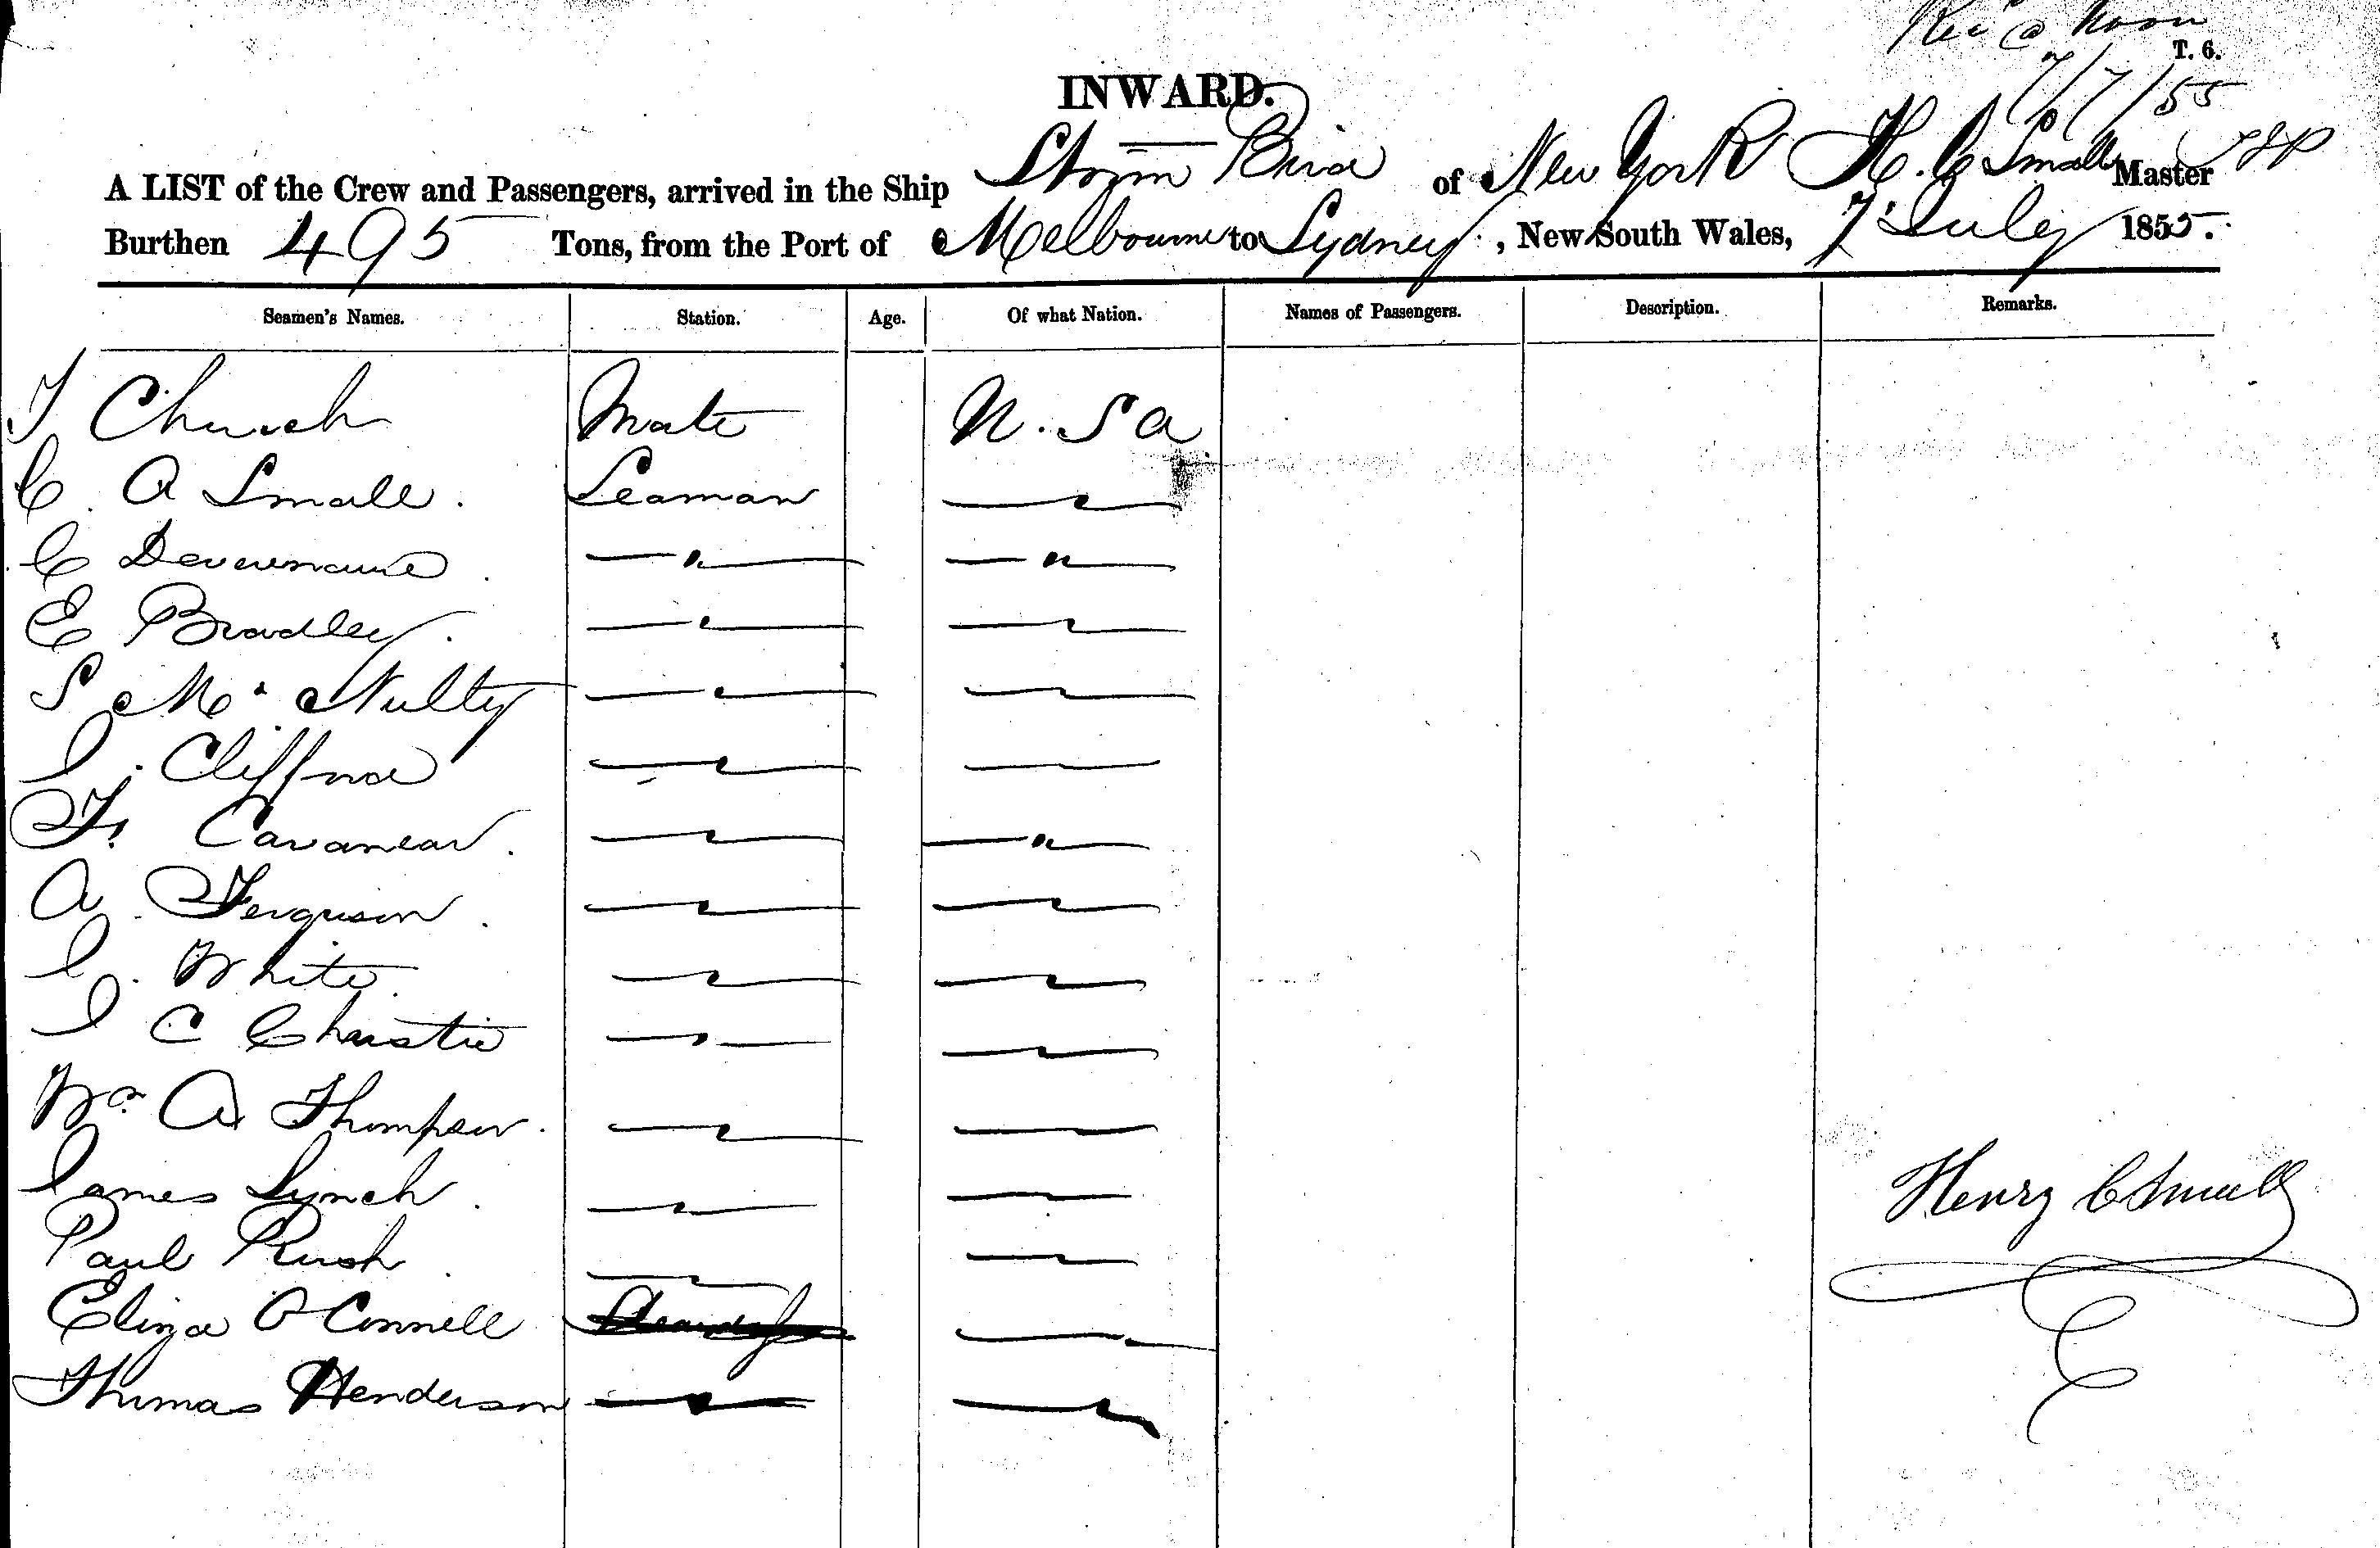 Rec @ Noon
T. 6.
7/7/55
INWARD.
A LIST of the Crew and Passengers, arrived in the Ship Storm Bird of New York H. C Small Master
Burthen 495 Tons, from the Port of Melbourne to Sydney, New South Wales, 7 July 1855.
Seamen's Names. Station. Age. Of what Nation. Names of Passengers. Description. Remarks.
T Church Mate U. S A
C. A Small. Seaman
C
E Bradley.
S Mc Nulty
J.
F.
A. Ferguson.
J. White.
J C Christie
Wm A Thompson.
James Lynch.
Paul Rush.
Henry C Small
Eliza O Connell
Thomas Henderson